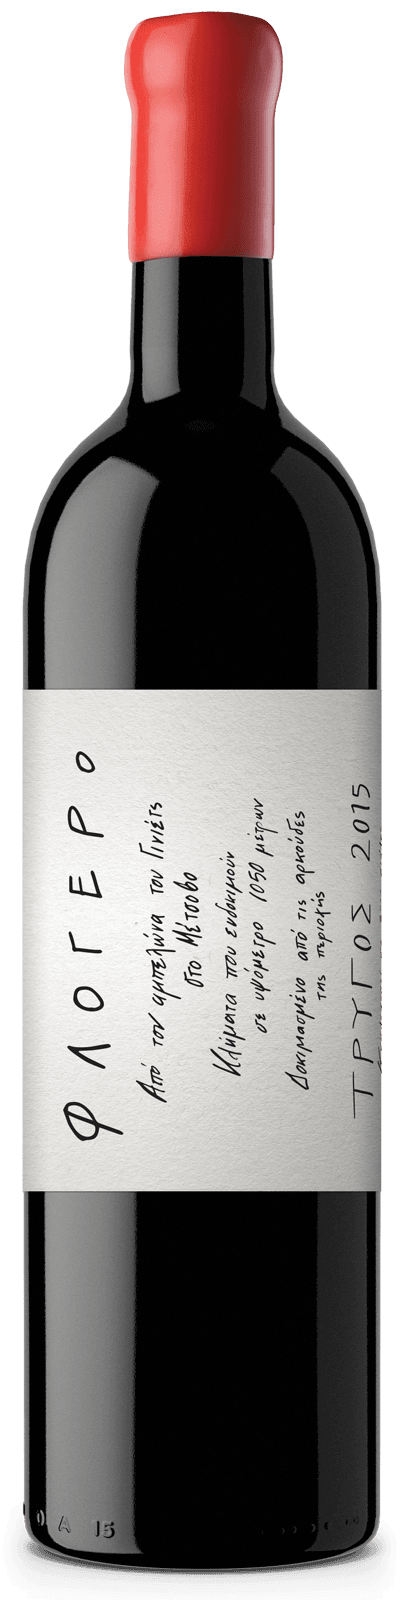 ΦΛΟΓΕΡο
Από τον αμπελώνα του Γινιέτς
στο Μέτσοβο
Κλήματα που ευδοκιμούν
σε υψόμετρο 1050 μέτρων
Δοκιμασμένο από τις αρκούδες
της περιοχής
ΤΡΥΓΟΣ 2015
0 A 15